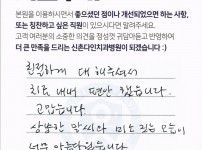 본원을 이용하시면서 좋으셨던 점이나 개선되었으면 하는 사항,
또는 칭찬하고 싶은 직원이 있으시다면 알려주세요.
고객 여러분의 소중한 의견을 정성껏 귀담아듣고 반영하여
더 큰 만족을 드리는 신촌다인치과병원이 되겠습니다 :)
친절하게 대해주셔서
치료 내내 편안 했습니다.
고맙습니다.
상냥한 말씨와 미소 짓는 모습이
너무 아름다웠습니다